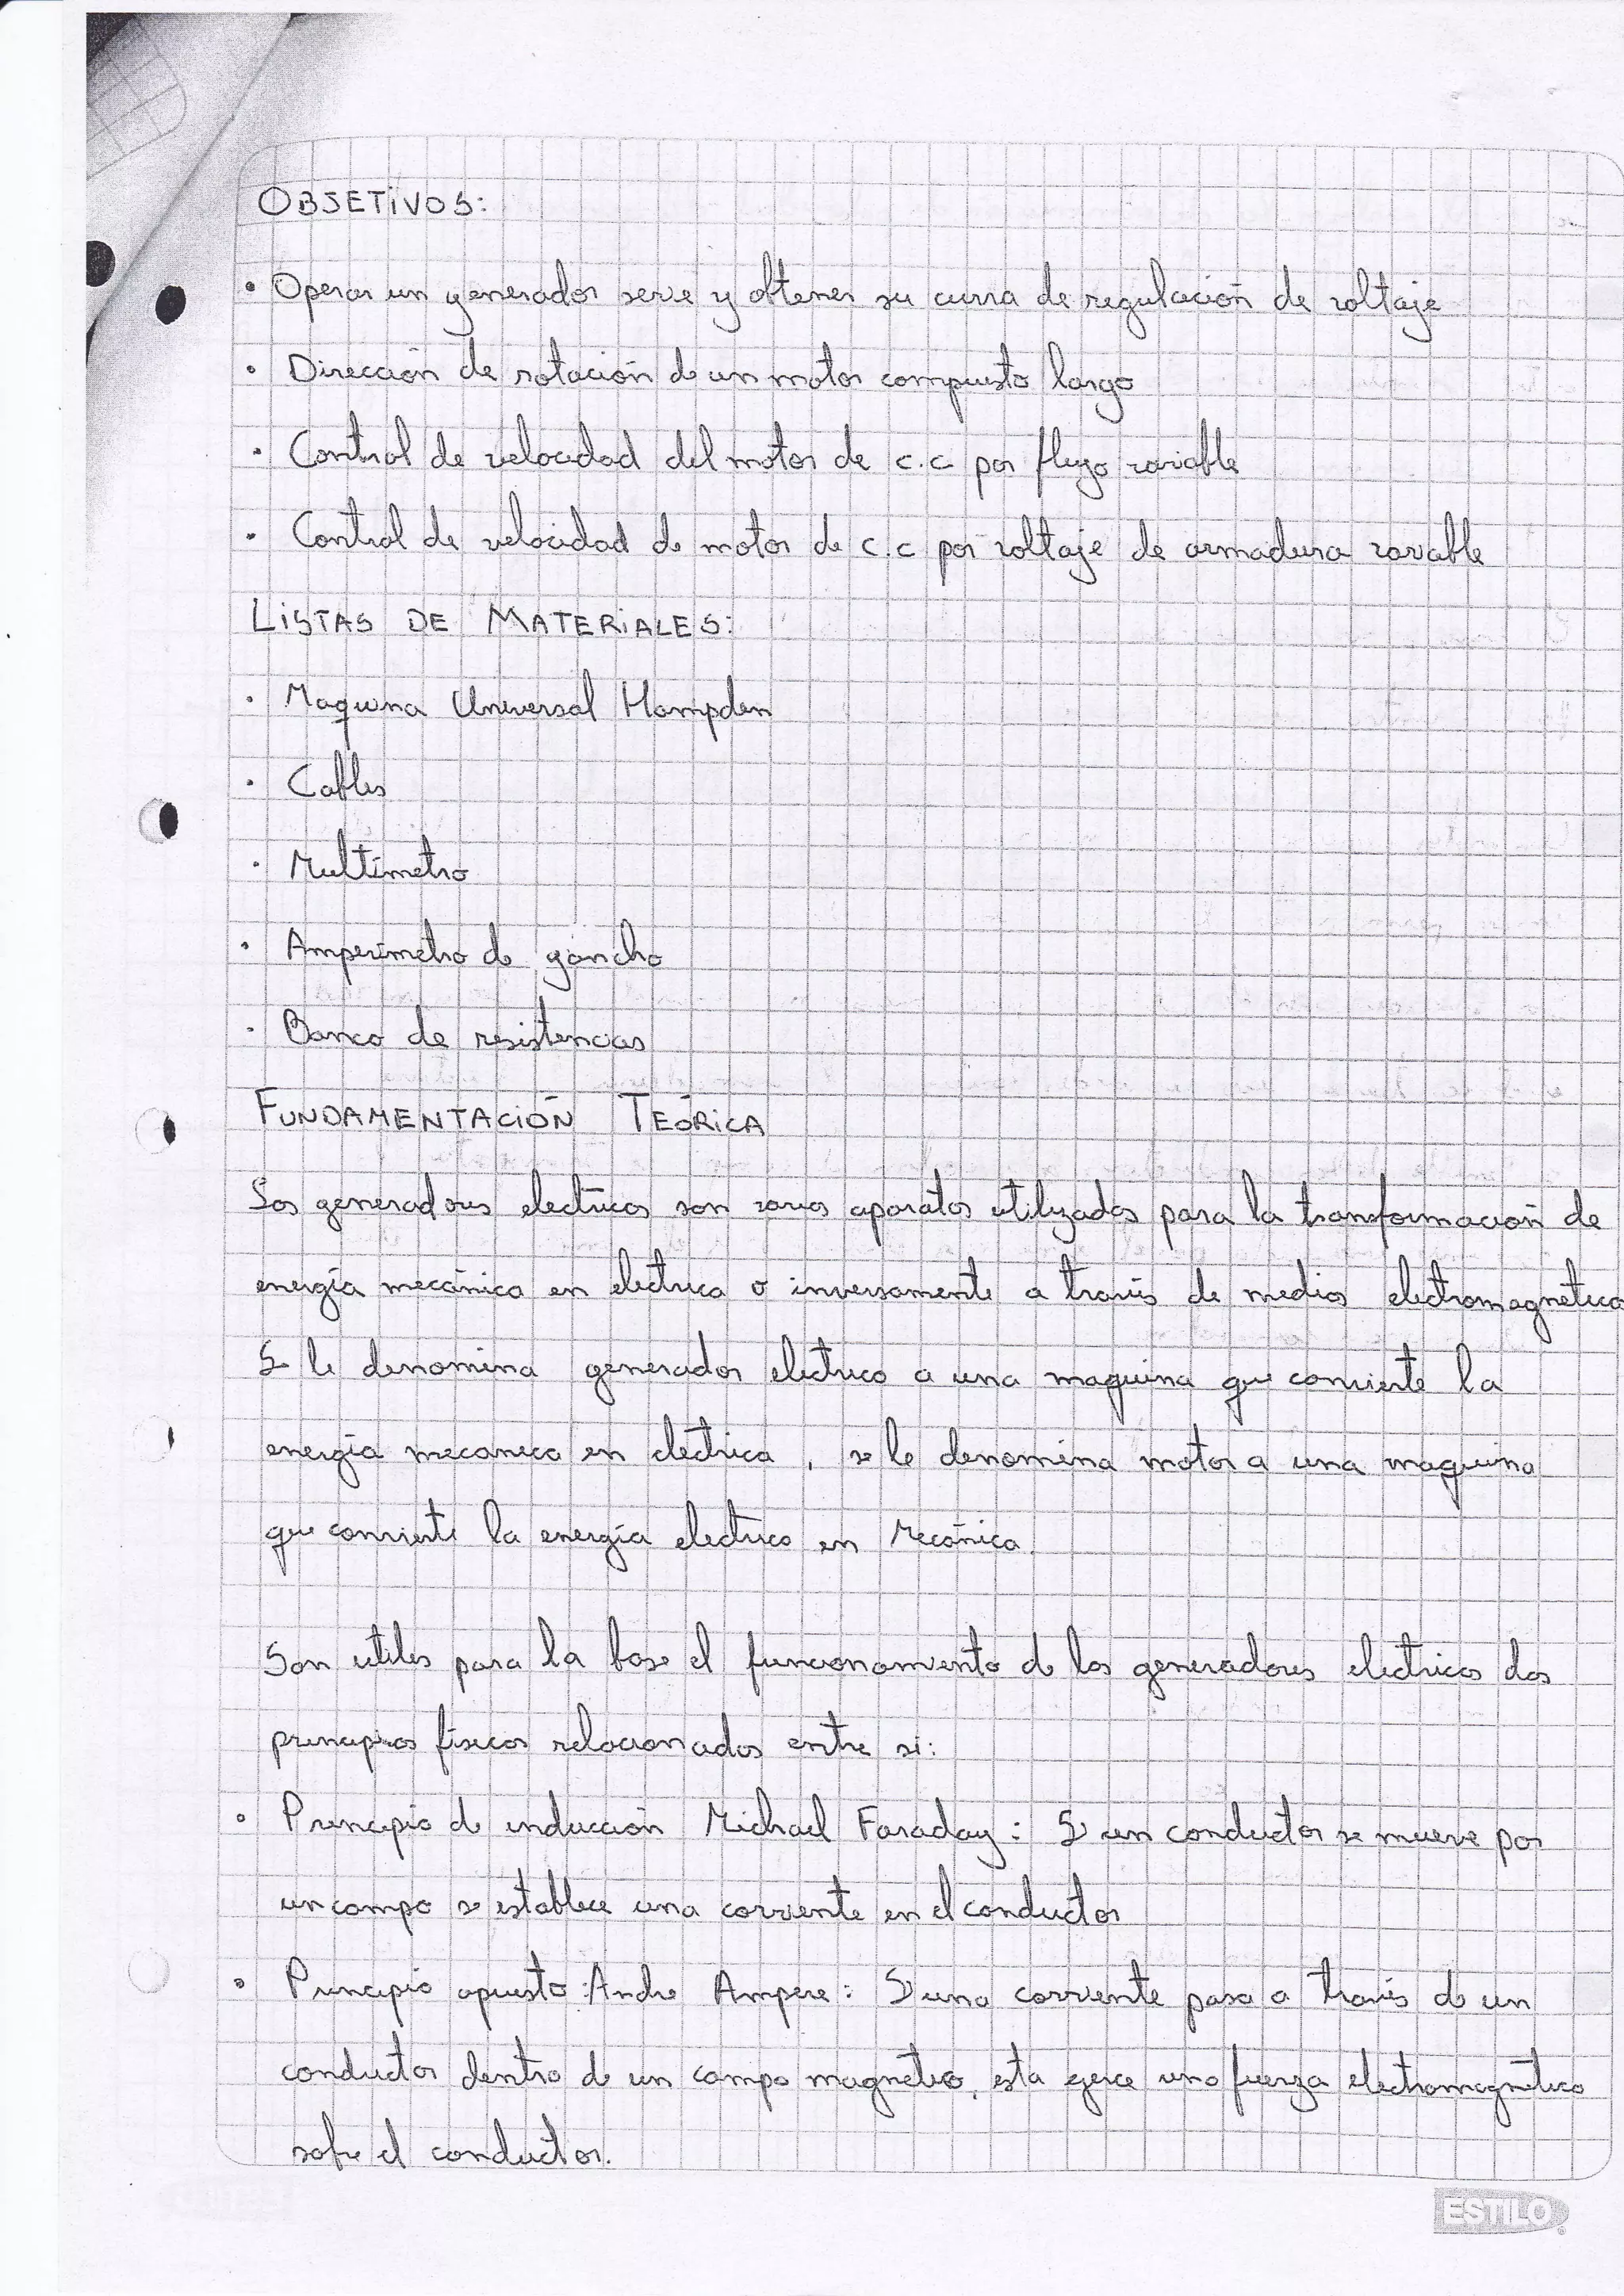 OBJETIVOS:
• Operar un generador serie y obtener su curva de regulación de voltaje
• Dirección de rotación de un motor compuesto largo
• Control de velocidad del motor de c.c por flujo variable
• Control de velocidad de motor de c.c por voltaje de armadura variable
LISTAS DE MATERIALES:
• Maquina Universal Hampden
• Cables
• Multímetro
• Amperímetro de gancho
• Banco de resistencias
FUNDAMENTACIÓN TEÓRICA
Los generadores electricos son varios aparatos utilizados para la transformación de
energía mecánica en electrica o inversamente a través de medios electromagnéticos
Se le denomina generador electrico a una maquina que convierte la
energía mecanica en electrica, se le denomina motor a una maquina
que convierte la energía electrica en Mecánica.
Son utiles para la base el funcionamiento de los generadores electricos dos
principios físicos relacionados entre si:
• Principio de inducción Michael Faraday: Si un conductor se mueve por
un campo se establece una corriente en el conductor
• Principio opuesto: Andre Ampere: Si una corriente pasa a través de un
conductor dentro de un campo magnetico, esta ejerce una fuerza electromagnética
sobre el conductor.
ESTILO